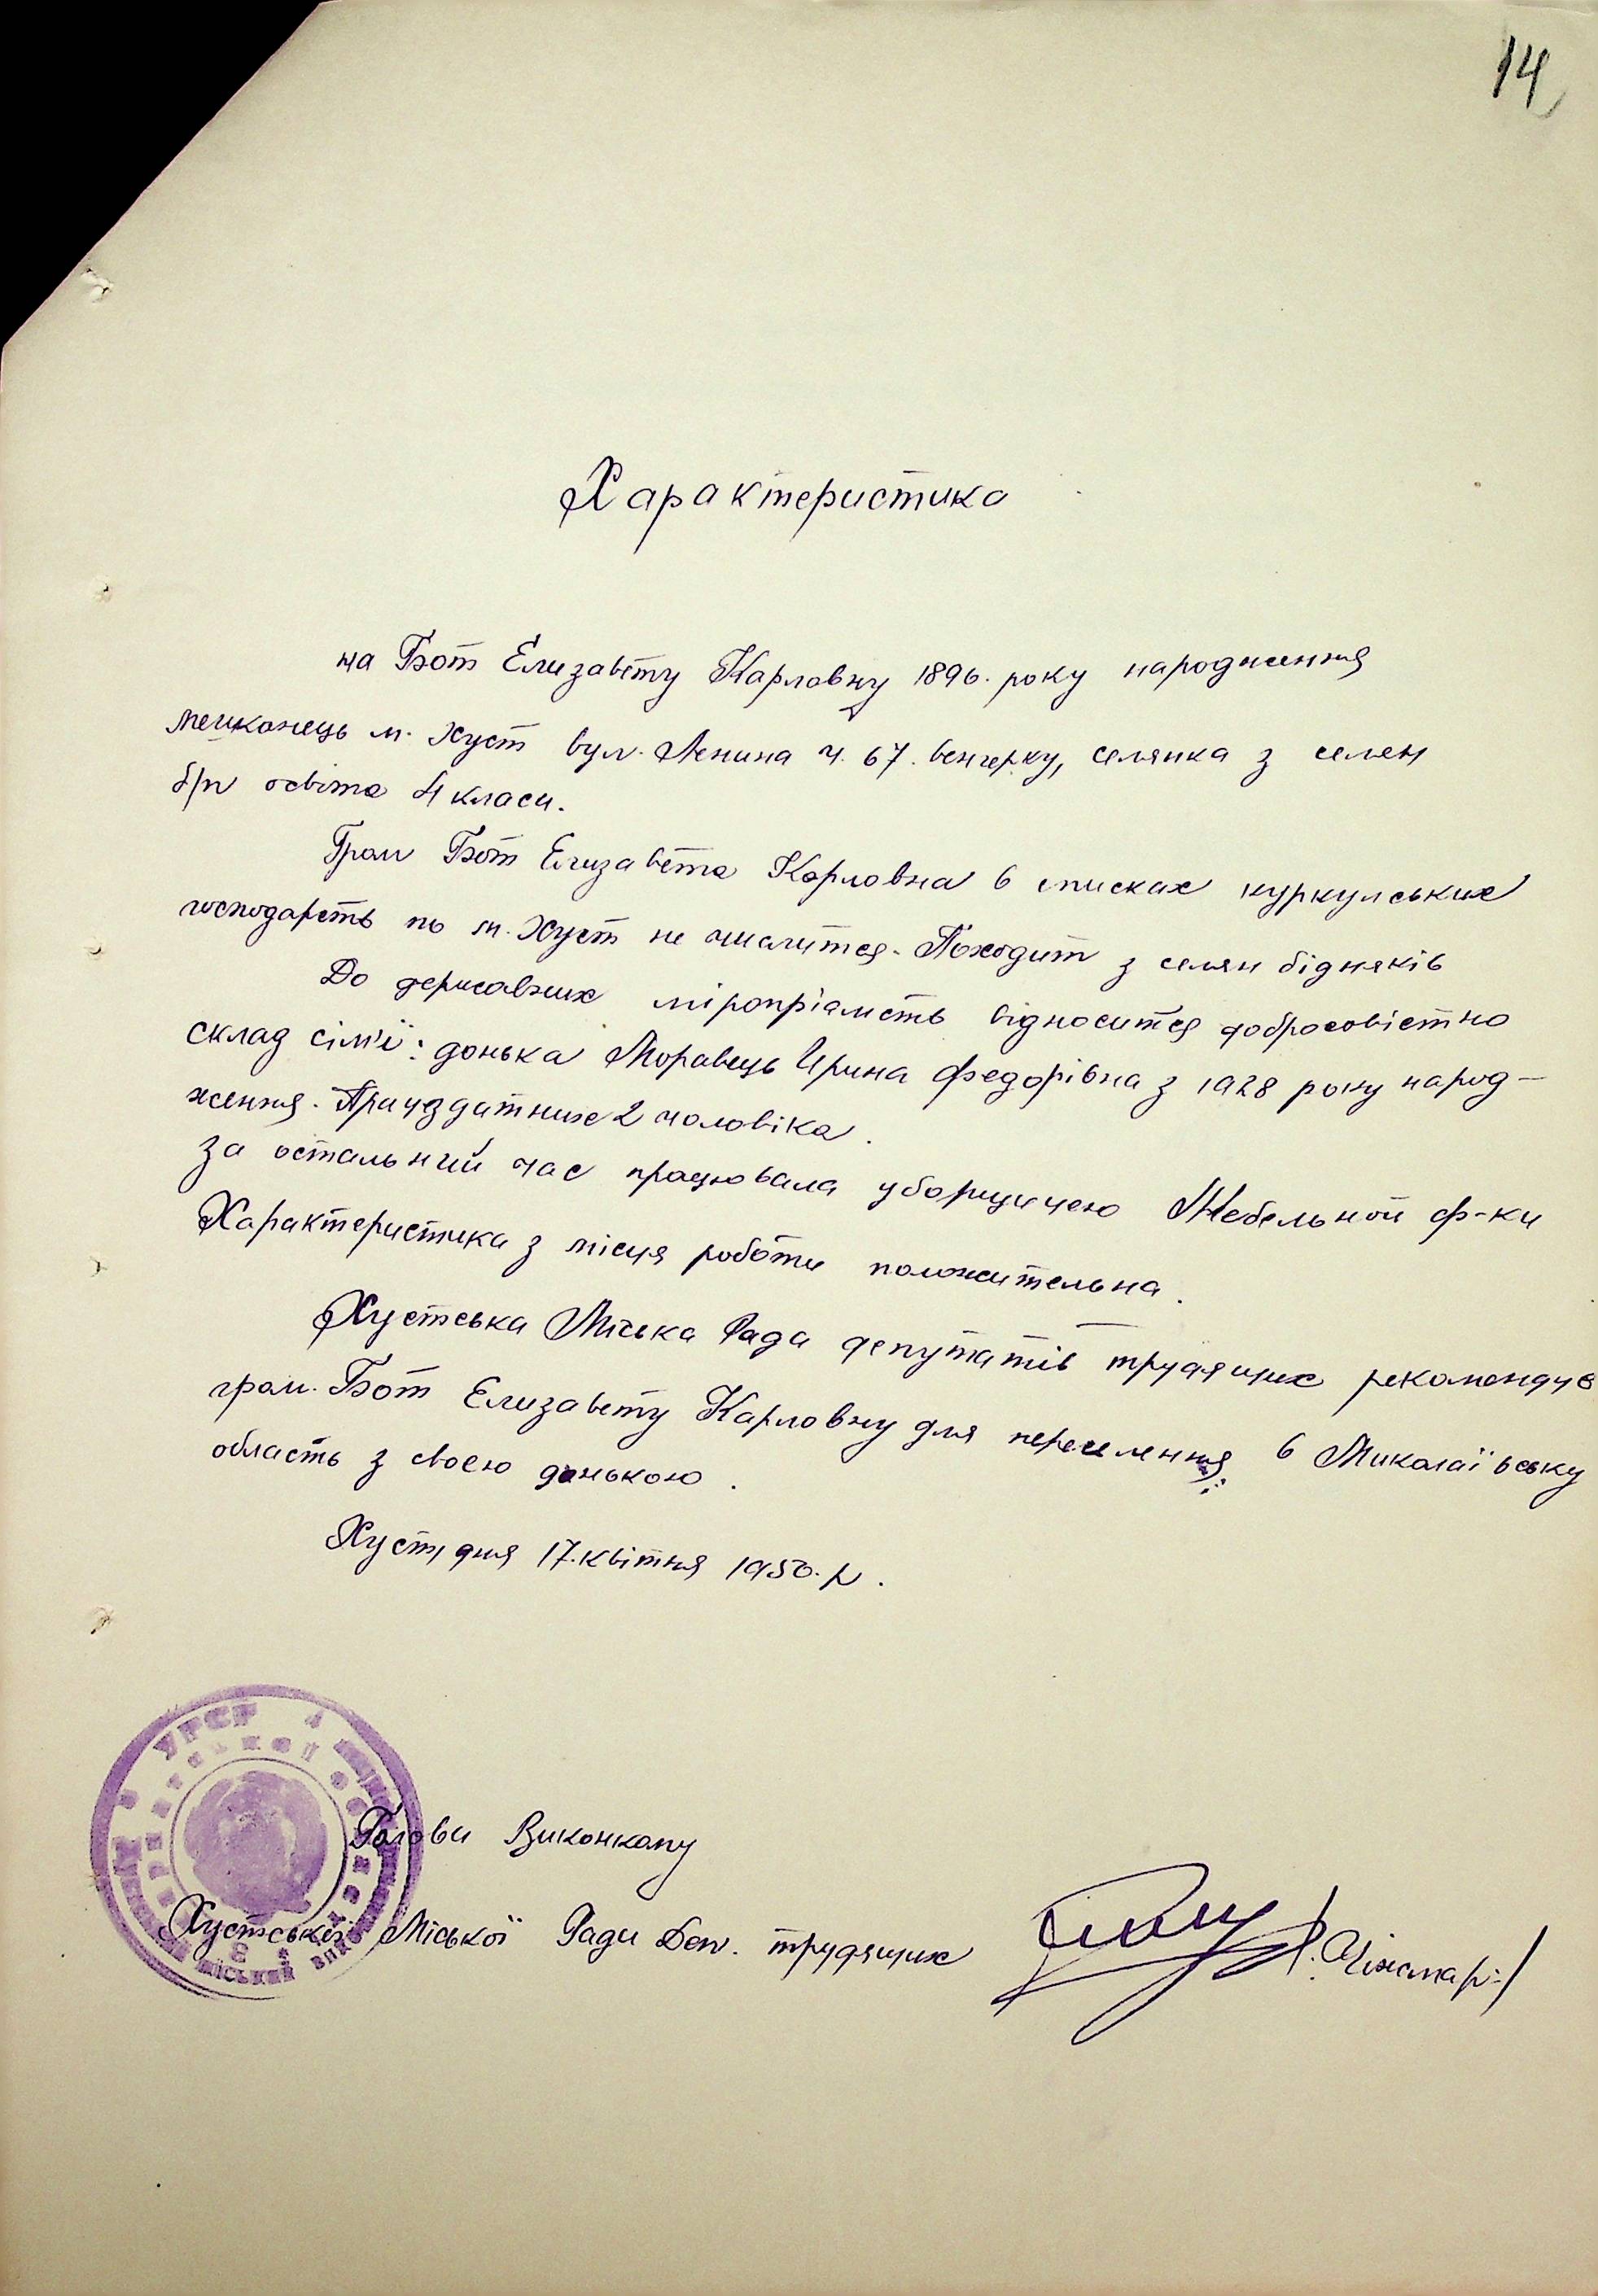 14
Характеристика
на Бот Елизавету Карловну 1896. року народження
мешканець м. Хуст вул. Леніна ч. 67. венгерку, селянка з селян
б/п освіта 4 класи.
Гром Бот Елизавета Карловна в списках куркулських
господарств по м. Хуст не числится. Походит з селян бідняків
До державних міропріамств відносится добросовістно
склад сім'ї: донька Моравець Ирина Федорівна з 1928 року народ-
ження. Працездатних 2 чоловіка.
за остальний час працювала уборщицею Мебельной ф-ки
Характеристика з місця роботи положительна.
Хустська Міська Рада депутатів трудящих рекомендує
гром. Бот Елизавету Карловну для переселення в Миколаївську
область з своєю донькою.
Хуст, дня 17. квітня 1950. р.
УРСР
Голови Виконкому
Хустської Міської Ради Деп. трудящих
міський